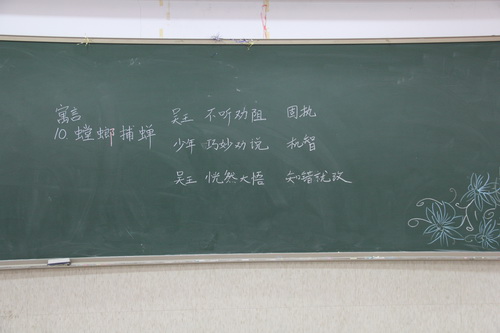 寓言
10.螳螂捕蝉
吴王 不听劝阻 固执
少年 巧妙劝说 机智
吴王 恍然大悟 知错就改